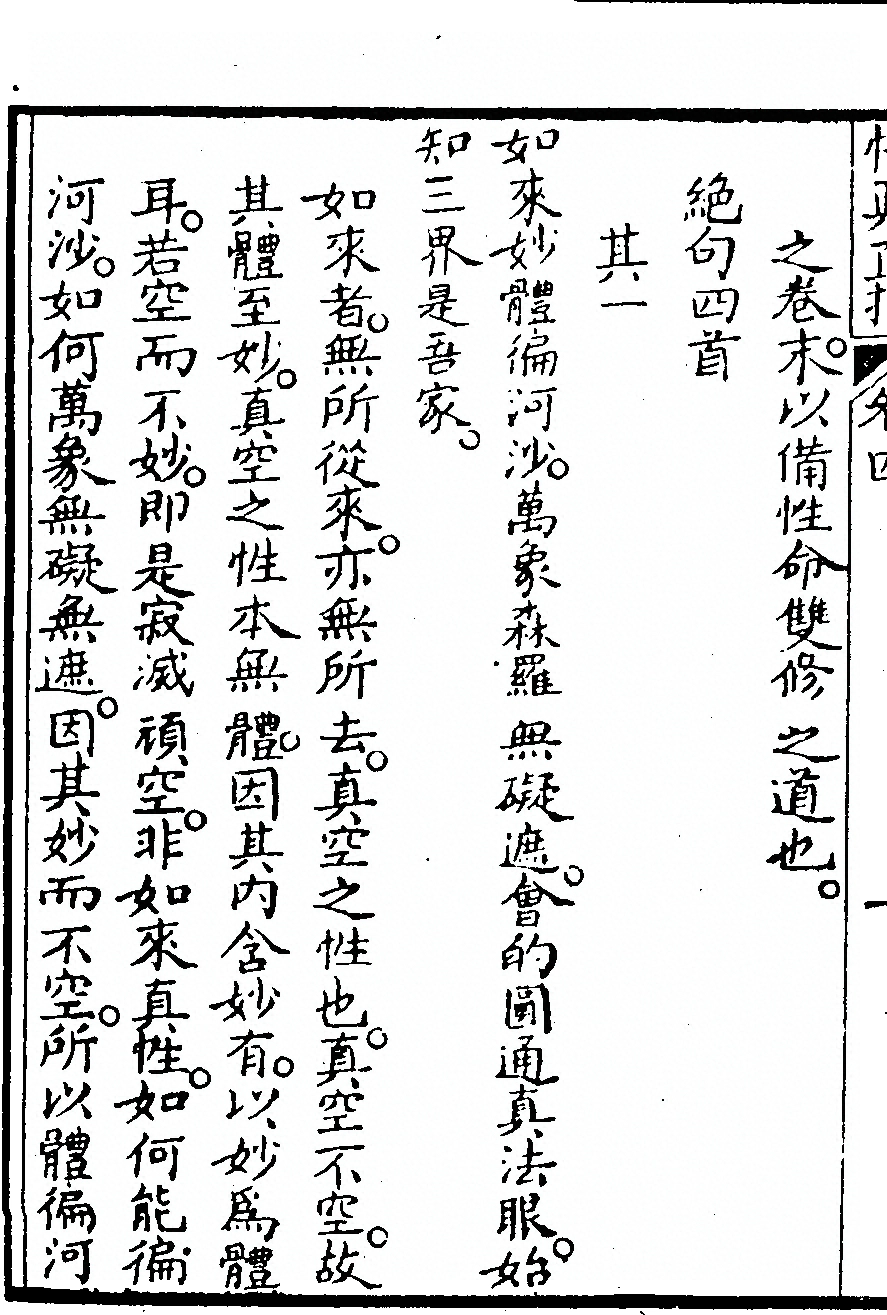 之卷末。以備性命雙修之道也。
絕句四首
其一
如來妙體徧河沙。萬象森羅無礙遮。會的圓通真法眼。始
知三界是吾家。
如來者。無所從來。亦無所去。真空之性也。真空不空。故
其體至妙。真空之性本無體。因其內含妙有。以妙為體
耳。若空而不妙。即是寂滅頑空。非如來真性。如何能徧
河沙。如何萬象無礙無遮。因其妙而不空。所以體徧河